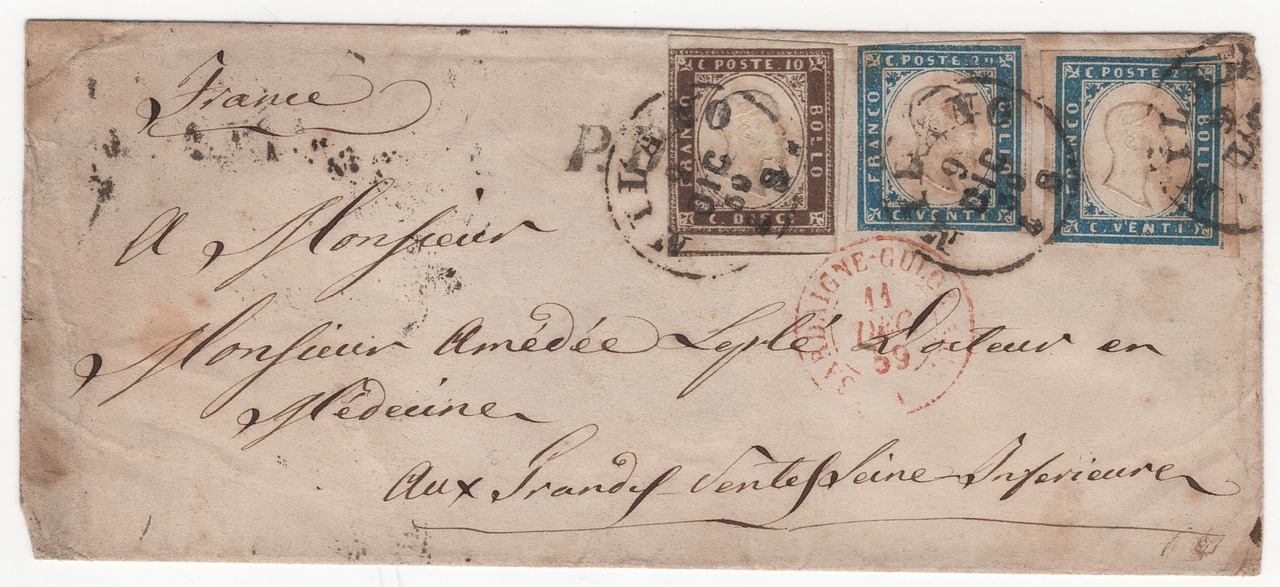 France
C. POSTE 10
FRANCO
BOLLO
C. DIECI
C. POSTE 20
FRANCO
BOLLO
C. VENTI
C. POSTE
FRANCO
BOLLO
C. VENTI
MILANO
9
DIC
59
8
MILANO
9
DIC
59
8
A Monsieur
SARDAIGNE-CULOZ
11
DEC
59
Monsieur Amédée Leplé Docteur en
Médecine
Aux Grandes Ventes Seine Inferieure